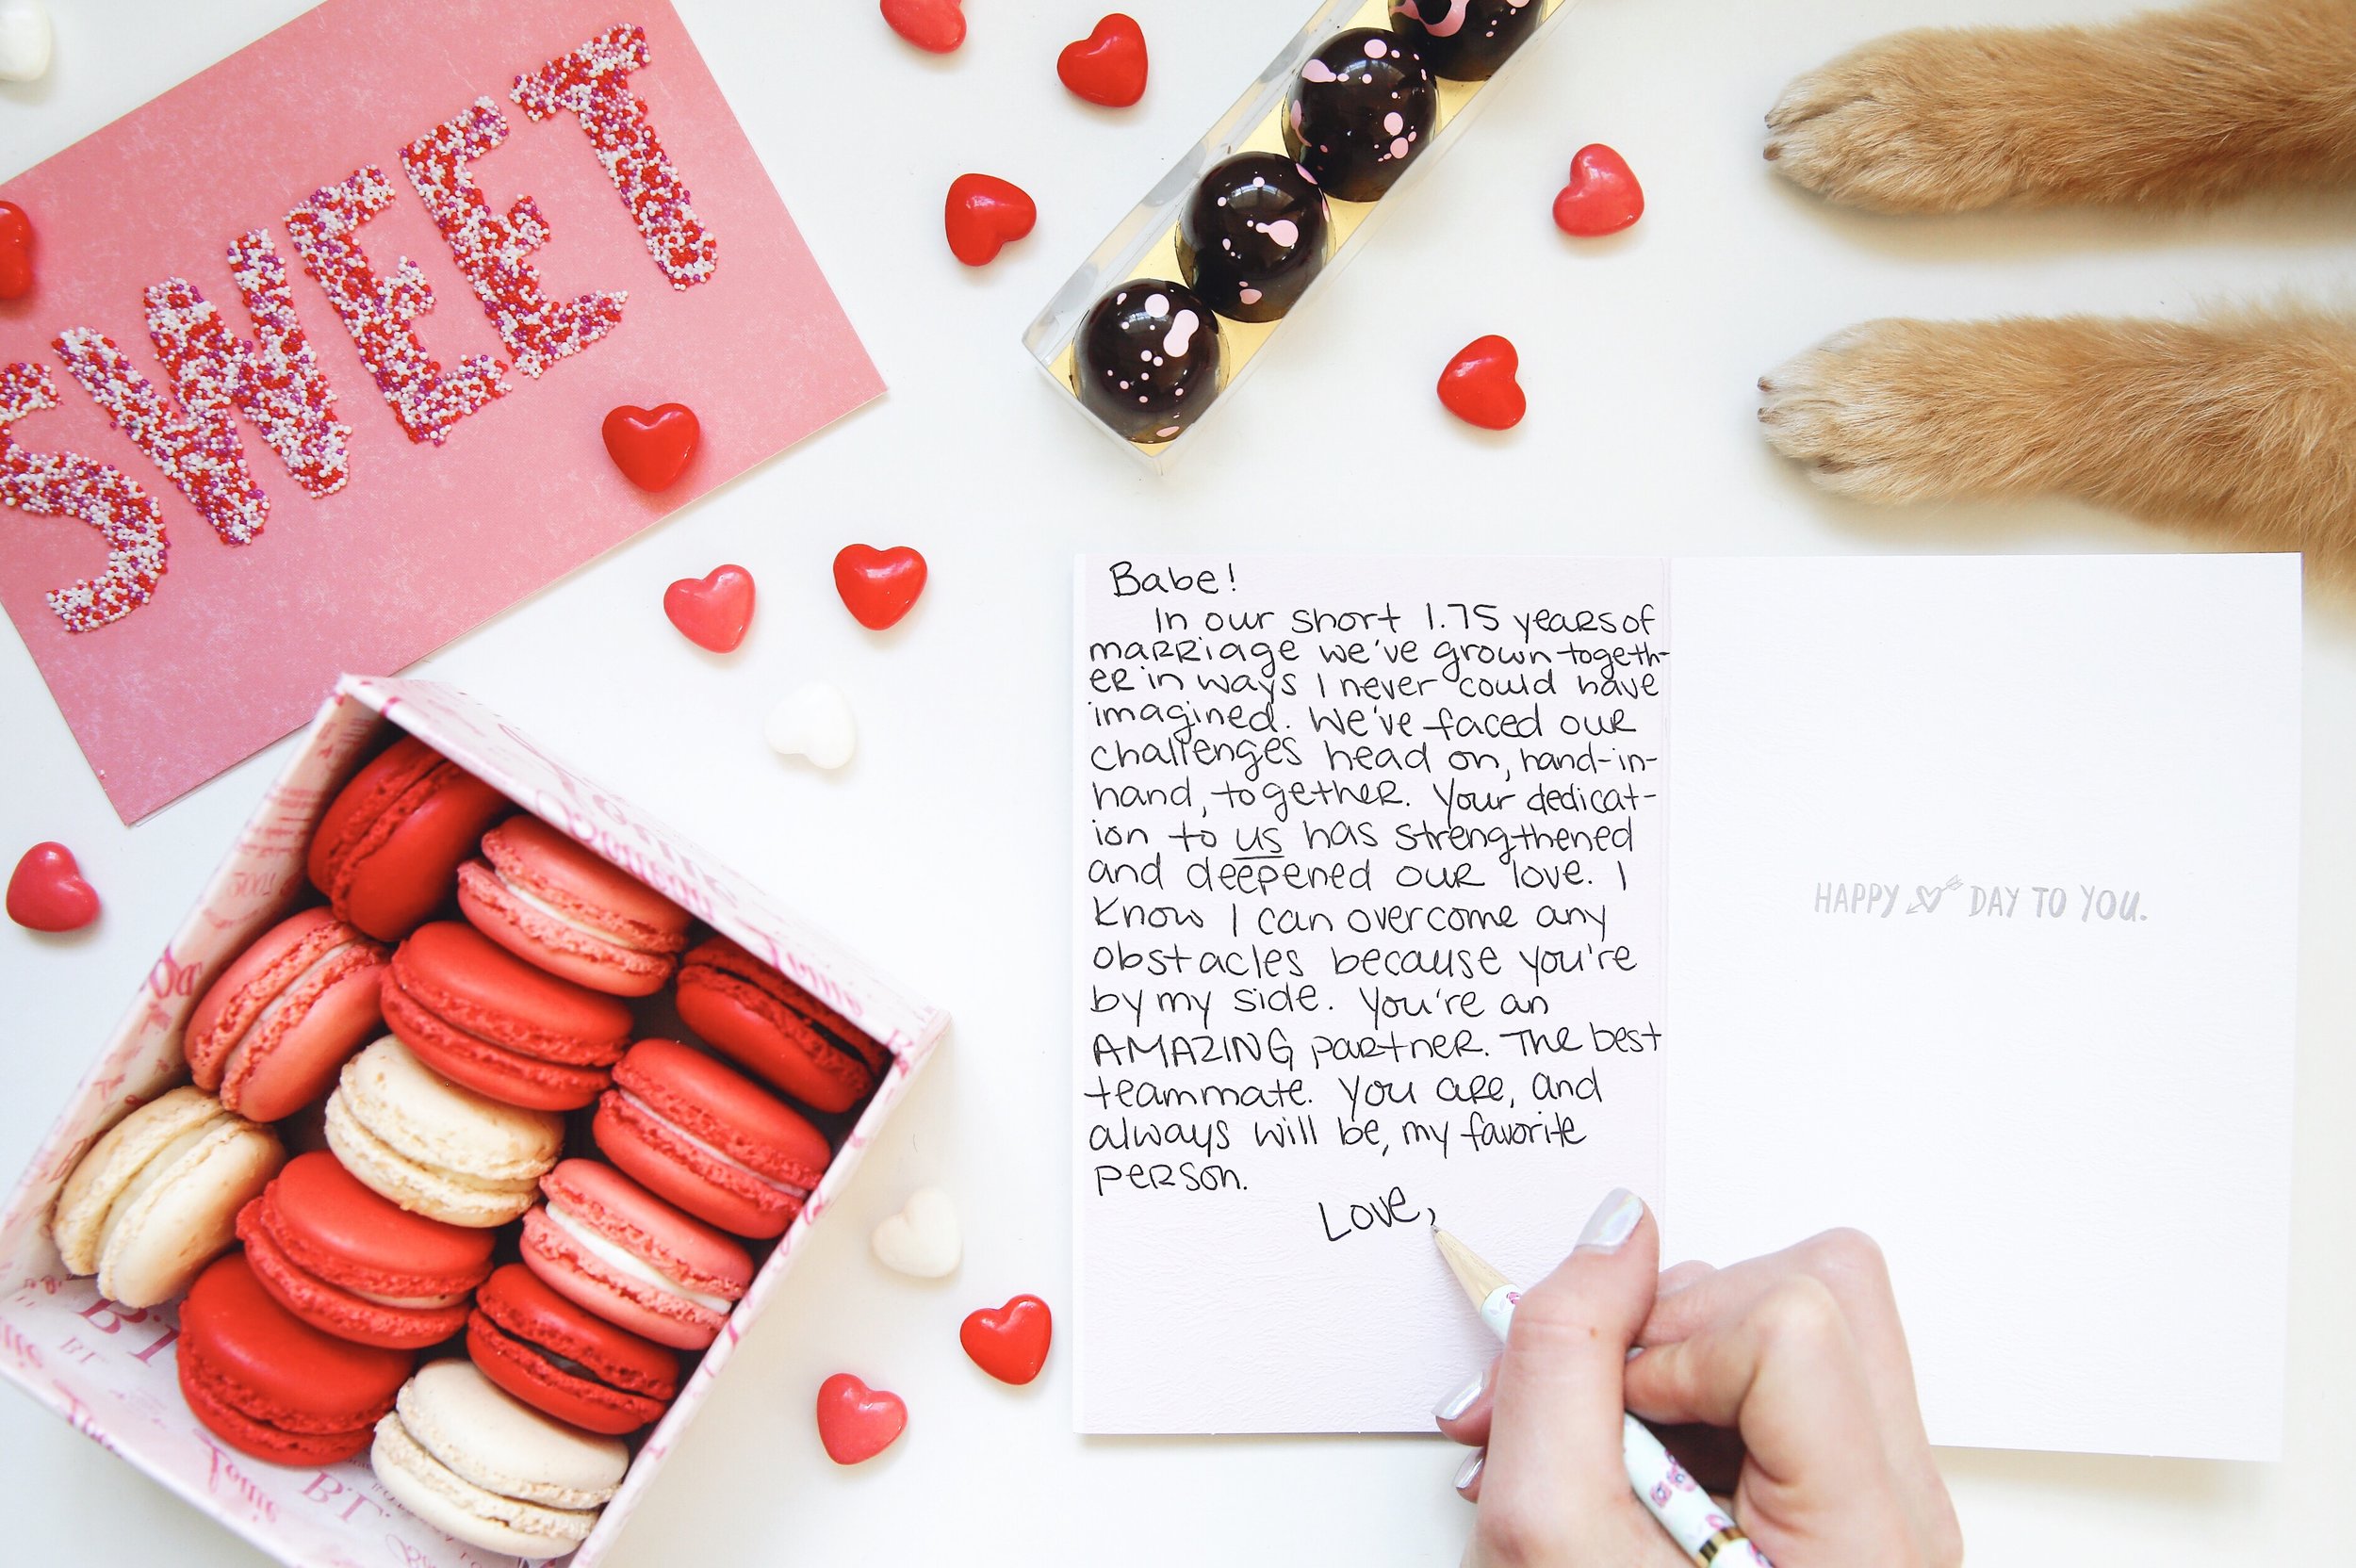 SWEET
Babe!
In our short 1.75 years of
marriage we've grown togeth-
er in ways I never could have
imagined. We've faced our
challenges head on, hand-in-
hand, together. Your dedicat-
ion to us has strengthened
and deepened our love. I
know I can overcome any
obstacles because you're
by my side. You're an
AMAZING partner. The best
teammate. You are, and
always will be, my favorite
person.
Love,
HAPPY DAY TO YOU.